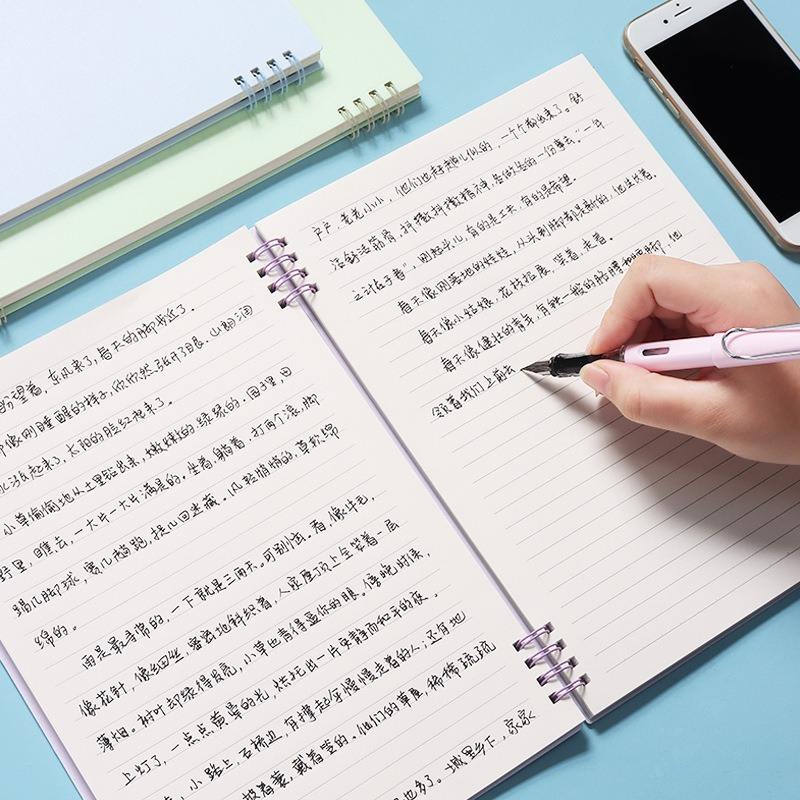 盼望着，东风来了，春天的脚步近了。
像刚睡醒的样子，欣欣然张开了眼。山朗润
水涨起来了，太阳的脸红起来了。
小草偷偷地从土里钻出来，嫩嫩的，绿绿的。园子里，田
野里，瞧去，一大片一大片满是的。坐着，躺着，打两个滚，脚
踢几脚球，赛几趟跑，捉几回迷藏。风轻悄悄的，草软绵
绵的。
雨是最寻常的，一下就是三两天。可别恼。看，像牛毛，
像花针，像细丝，密密地斜织着，人家屋顶上全笼着一层
薄烟。树叶却绿得发亮，小草也青得逼你的眼。傍晚时候，
上灯了，一点点黄晕的光，烘托出一片安静而和平的夜。
，小路上，石桥边，有撑起伞慢慢走着的人；还有地
披着蓑，戴着笠的。他们的草屋，稀稀疏疏
也多了。城里乡下，家家
户户，老老小小，他们也赶趟儿似的，一个个都出来了。舒
活舒活筋骨，抖擞抖擞精神，各做各的一份事去。"一年
之计在于春"，刚起头儿，有的是工夫，有的是希望。
春天像刚落地的娃娃，从头到脚都是新的，他生长着。
春天像小姑娘，花枝招展，笑着，走着。
春天像健壮的青年，有铁一般的胳膊和腰脚，他
领着我们上前去